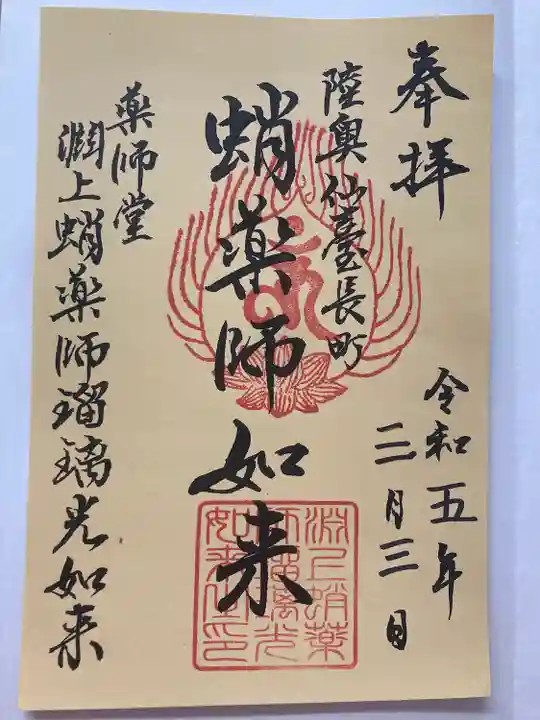 奉拝
令和五年
三月三日
陸奥仙臺長町
蛸薬師如来
薬師堂
渕上蛸薬師瑠璃光如来
渕上蛸薬
師瑠璃光
如来住印